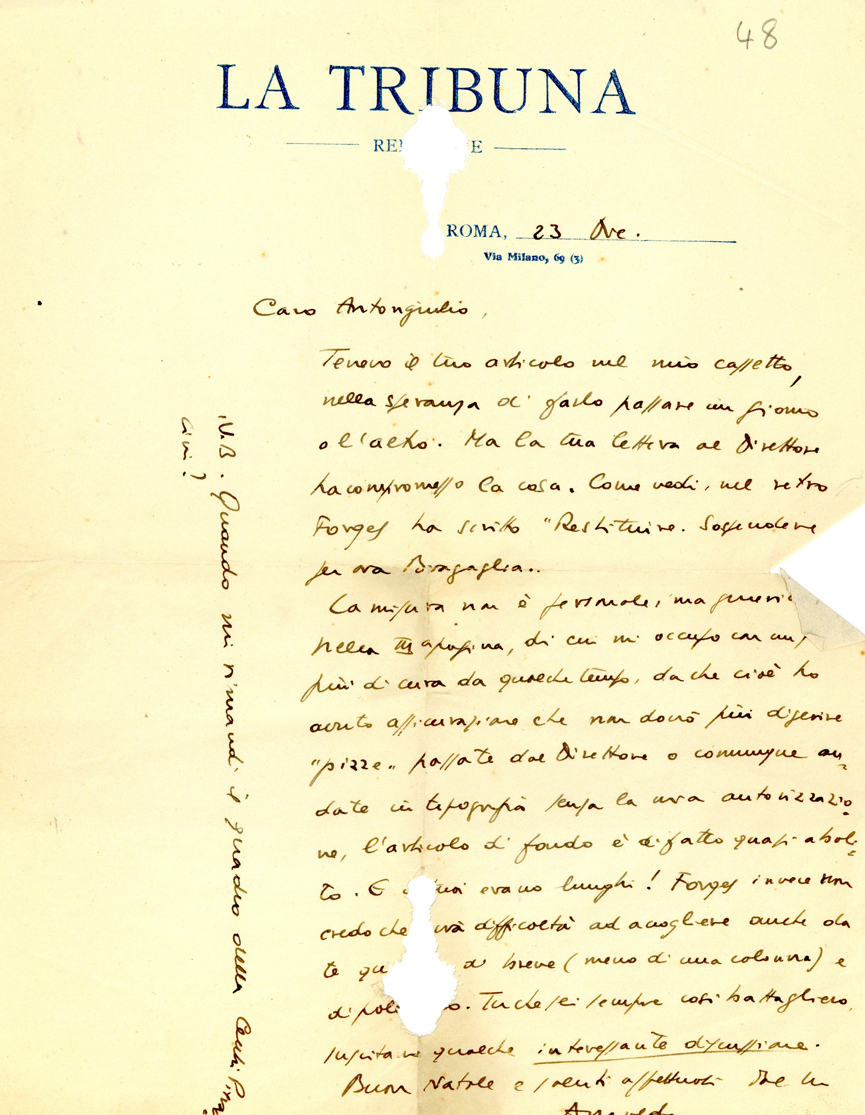 48
LA TRIBUNA
ROMA, 23 Dic.
Via Milano, 69 (3)
Caro Antongiulio,
Tenevo il tuo articolo nel mio cassetto,
nella speranza di farlo passare un giorno
o l'altro. Ma la tua lettera al Direttore
ha compromesso la cosa. Come vedi, nel retro
Forges ha scritto "Restituire. Sospendere
per ora Bragaglia„.
La misura non è personale, ma
Nella IIIa pagina, di cui mi occupo con un
più di cura da qualche tempo, da che cioè ho
avuto assicurazione che non dovrò più digerire
"pizze„ passate dal Direttore o comunque an-
date in tipografia senza la mia autorizzazio-
ne, l'articolo di fondo è di fatto quasi aboli-
to. E i tuoi erano lunghi! Forges invece non
credo che difficoltà ad accogliere anche da
te di breve (meno di una colonna) e
di. Tu che sei sempre così battagliero,
suscita qualche interessante discussione.
Buon Natale e saluti affettuosi dal tuo
N.B. Quando mi rimandi il quadro della